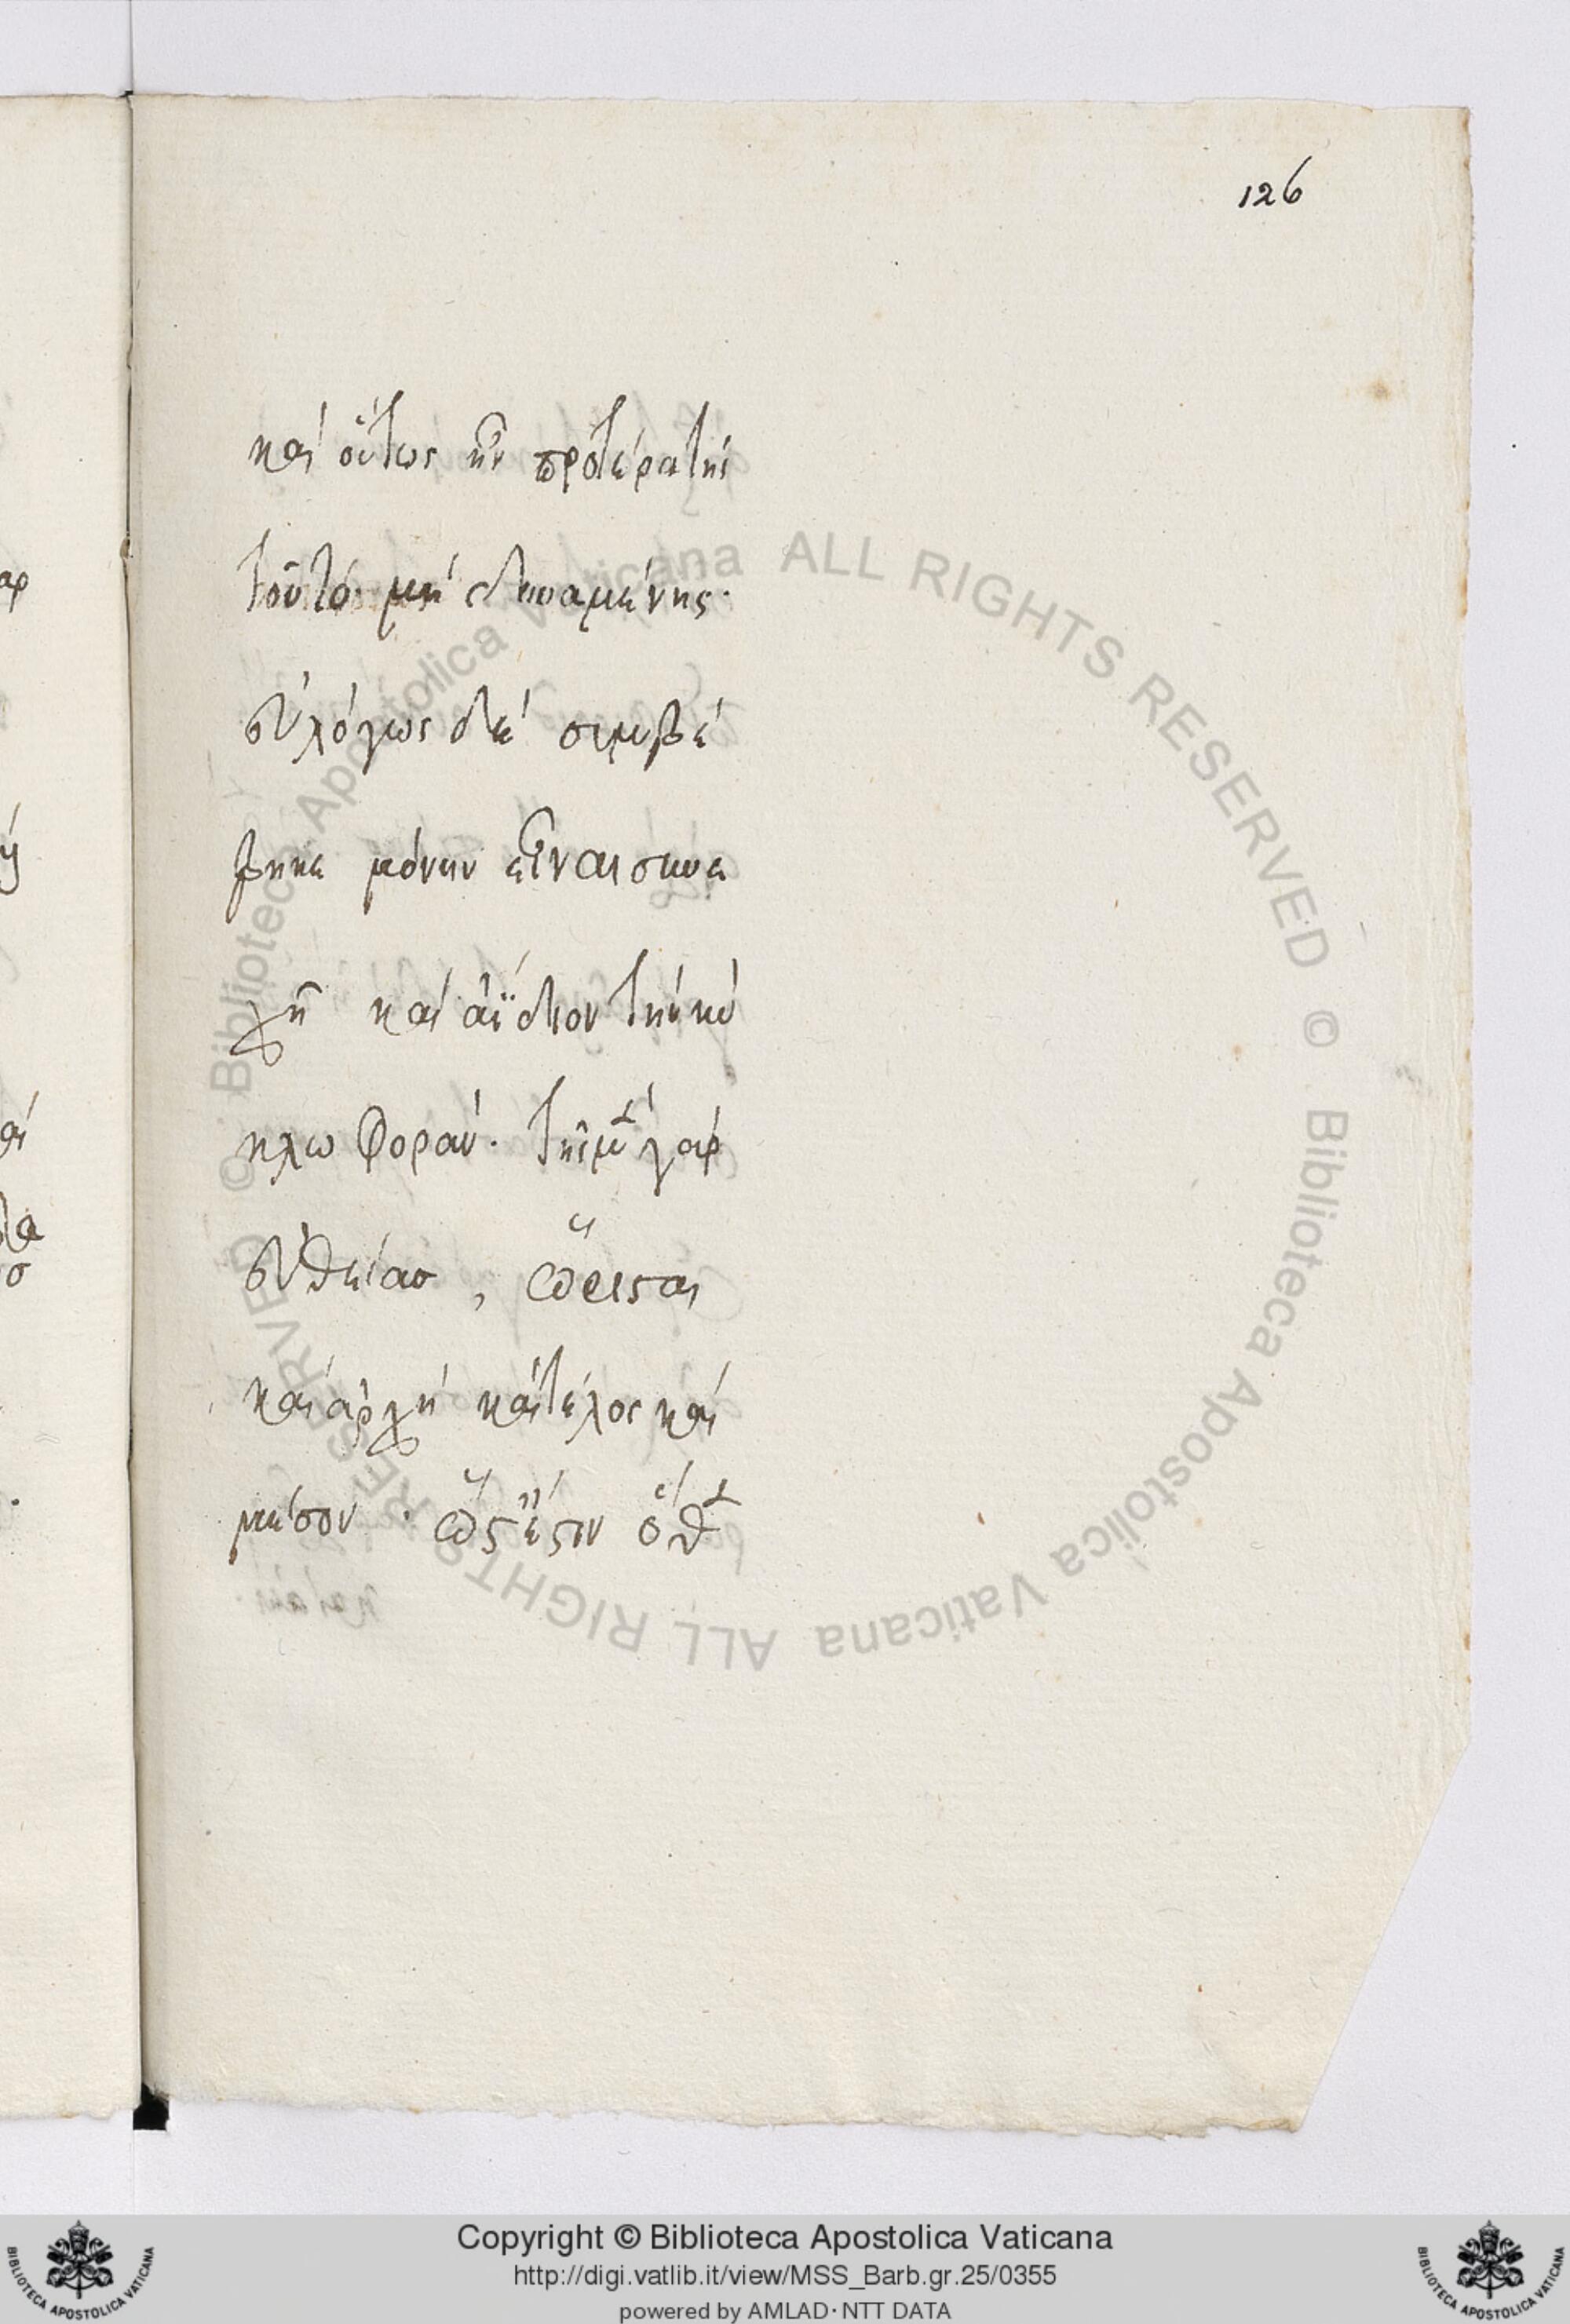 126
καὶ οὕτως ἦν προτέρα τῆς
τοῦτο μὴ δυναμένης·
εὐλόγως δὲ συμβέ
βηκε μόνην εἶναι συνε
χῆ καὶ ἀΐδιον τὴν κύ
κλω φοράν. τῆς μὲν γὰρ
εὐθείας, ὥρισται
καὶ ἀρχὴ καὶ τέλος καὶ
μέσον · ὥστ' ἔστιν ὅθεν
© Biblioteca Apostolica Vaticana ALL RIGHTS RESERVED © Biblioteca Apostolica Vaticana ALL RIGHTS RESERVED
Copyright © Biblioteca Apostolica Vaticana
http://digi.vatlib.it/view/MSS_Barb.gr.25/0355
powered by AMLAD·NTT DATA
BIBLIOTECA APOSTOLICA VATICANA
BIBLIOTECA APOSTOLICA VATICANA